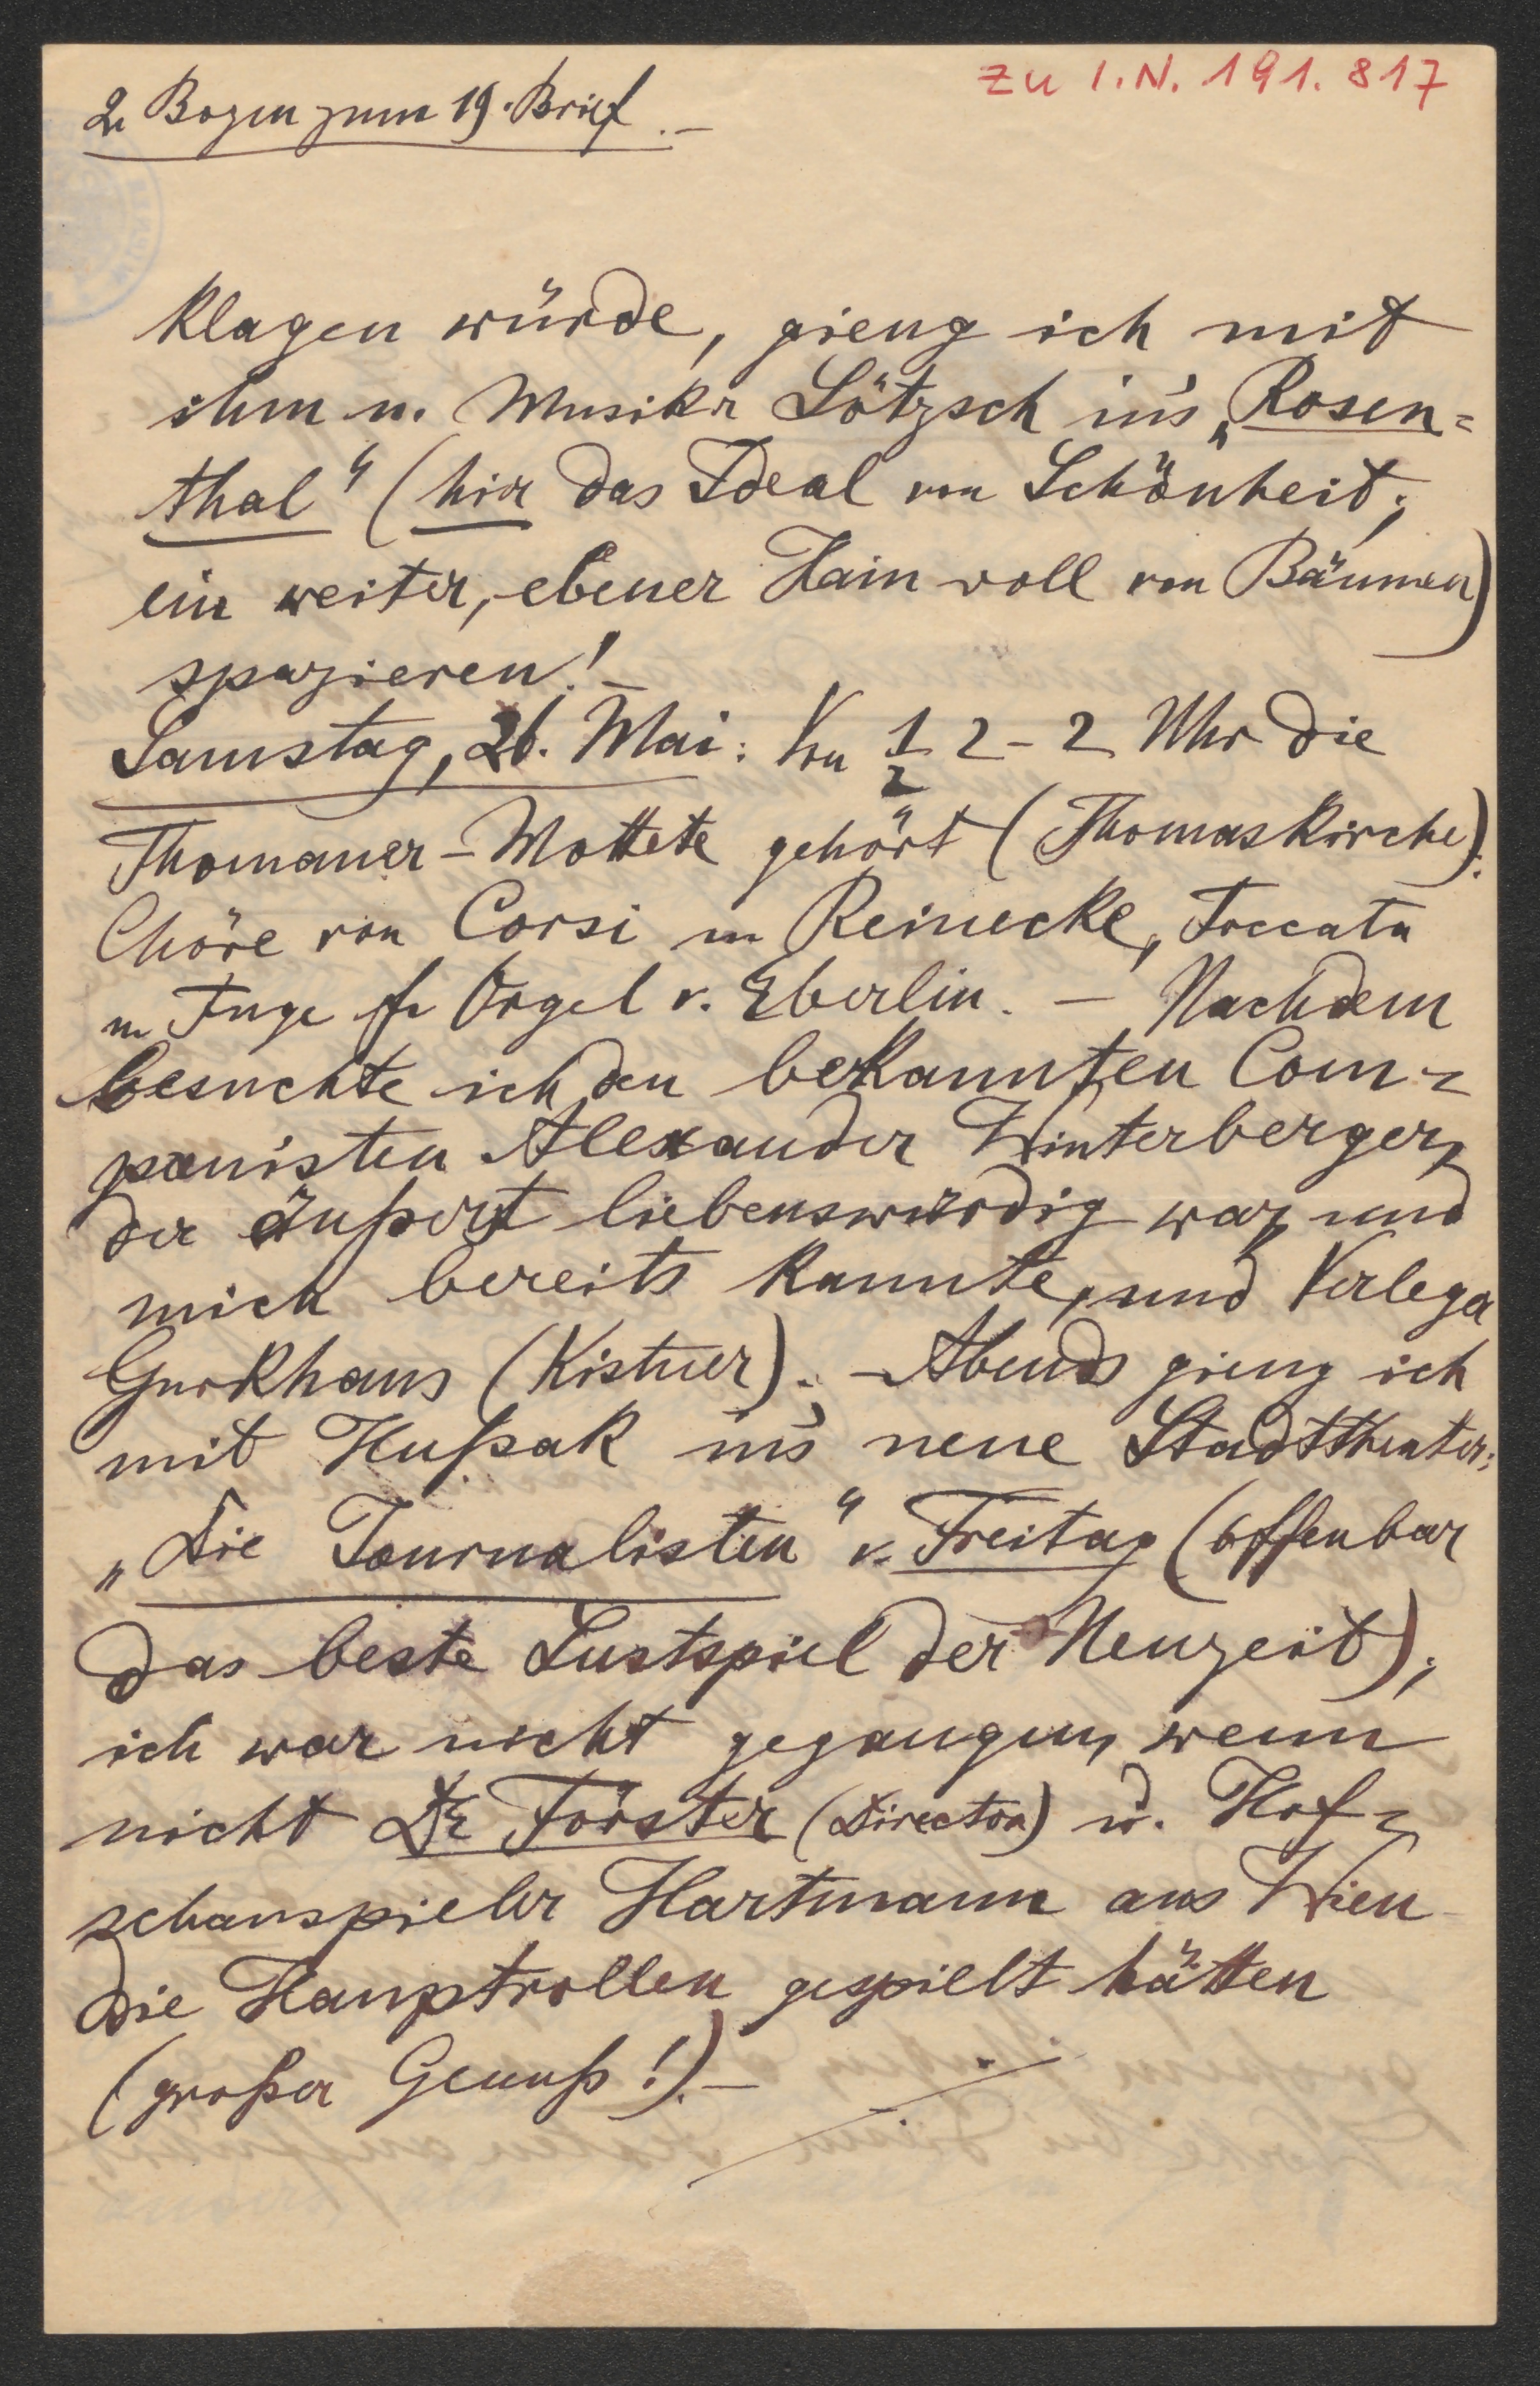 zu I.N. 191.817
2 Bogen zum 19. Brief.–
klagen würde, gieng ich mit
ihm u. Musikr Lötzsch in's „Rosen=
thal“ (hier das Ideal von Schönheit;
ein weiter, ebener Hain voll von Bäumen)
spazieren! –
Samstag, 26. Mai: Von ½ 2 – 2 Uhr die
Thomaner-Mottete gehört (Thomaskirche).
Chöre von Corsi u Reinecke, Toccata
u Fuge fr Orgel v. Eberlin. – Nachdem
besuchte ich den bekannten Com=
ponisten Alexander Winterberger,
der äußerst liebenswürdig war, und
mich bereits kannte, und Verleger
Gurkhaus (Kistner). – Abends gieng ich
mit Hußak in's neue Stadttheater:
„Die Journalisten“ v. Freitag (offenbar
das beste Lustspiel der Neuzeit);
ich war nicht gegangen, wenn
nicht Dr Förster (Director) u. Hof=
schauspieler Hartmann aus Wien
die Hauptrollen gespielt hätten
(großer Genuß!). –